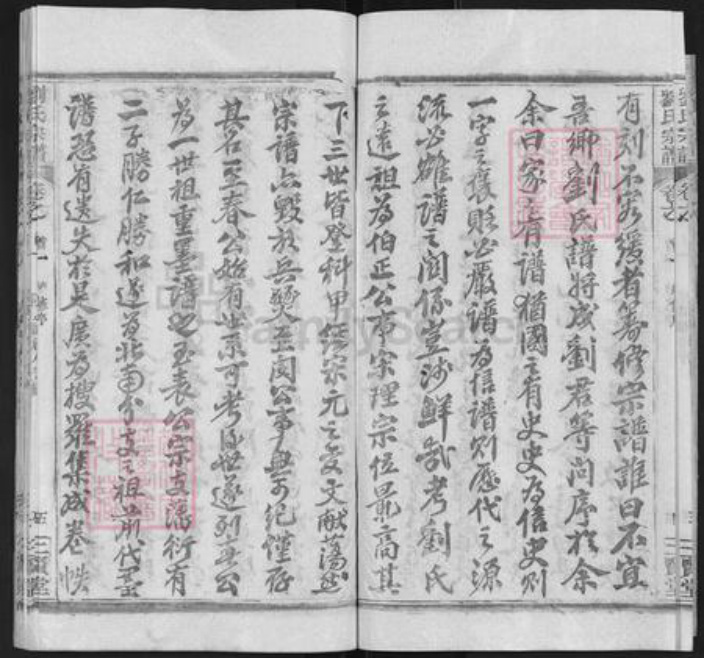 有刻不容緩者箸修宗譜誰曰不宜
吾鄉劉氏譜將成劉君等问序於余
余曰家之有譜猶國之有史史為信史则
一字之褒貶必嚴譜為信譜则歷代之源
流必確譜之阅係豈沙鮮哉考劉氏
之遠祖為伯正公
宗理宗位最高其
下三世皆登科甲
宋元之
文献蕩然
宗譜亦毀於兵燹至
公事無可紀僅存
其名至春公始有世系可考後世遂列
公
為一世祖重墨譜
玉表公宗支蕃衍有
二子勝仁勝和遂為北南分支之祖前代
譜
有遺失於是廣為搜羅集成卷帙
劉氏宗譜
卷之
首
三
堂
FamilySearch